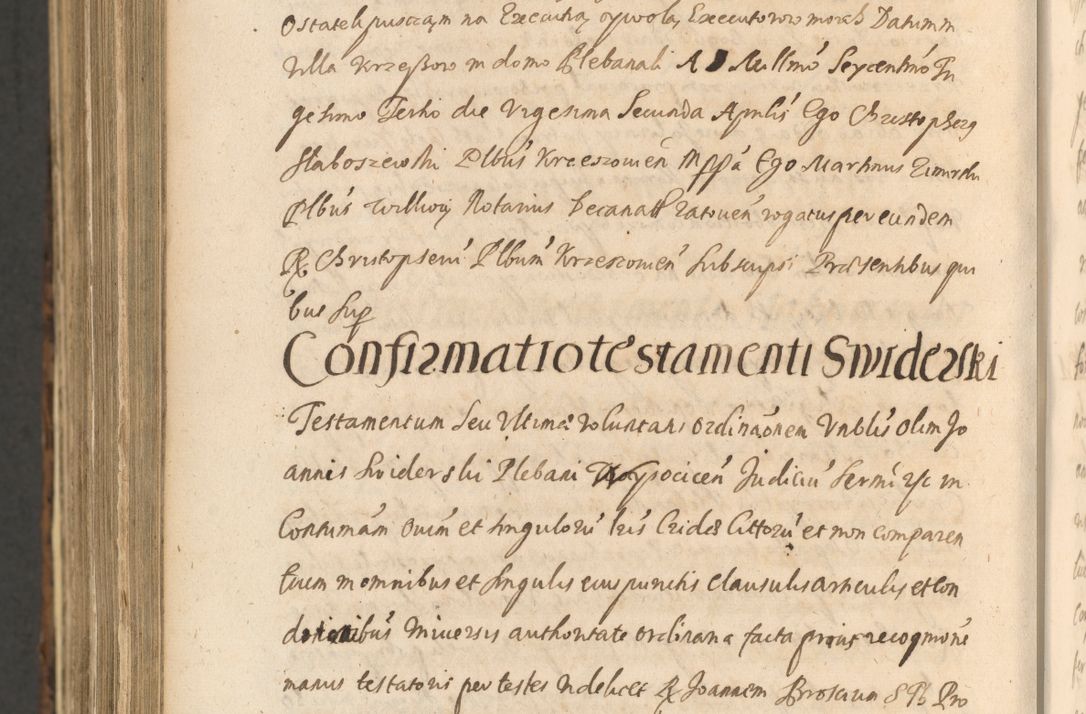 Ostatek puszczam na Executią y wolą Executorow moich Datum in
Villa Krzeszow in domo Plebanali A D Millmo Seycentmo Tri
gesimo Tertio die Vigesima Secunda Aprilis Ego Christopherg
Słaboszewski Plbus Krzeszowien mppa Ego Martinus
Plbus Notarius Decanatt Zatorien rogatus per eundem
R Christopherū Plbum Krzeszowien subscripsi Præsentibus qui
bus sup
Confirmatio testamenti Swiderski
Testamentum seu Vltimæ voluntatis ordinaonem Vnblis olim Jo
annis Swiderski Plebani Judiciū in
Contumām oium et singulorū Ctttorū et non comparen
tium in omnibus et singulis eius punctis clausulis articulis et con
ditionibus Vniversis authoritate ordinaria facta prius recognitione
manus testatoris per testes videlicet R Joannem Broscium Pro